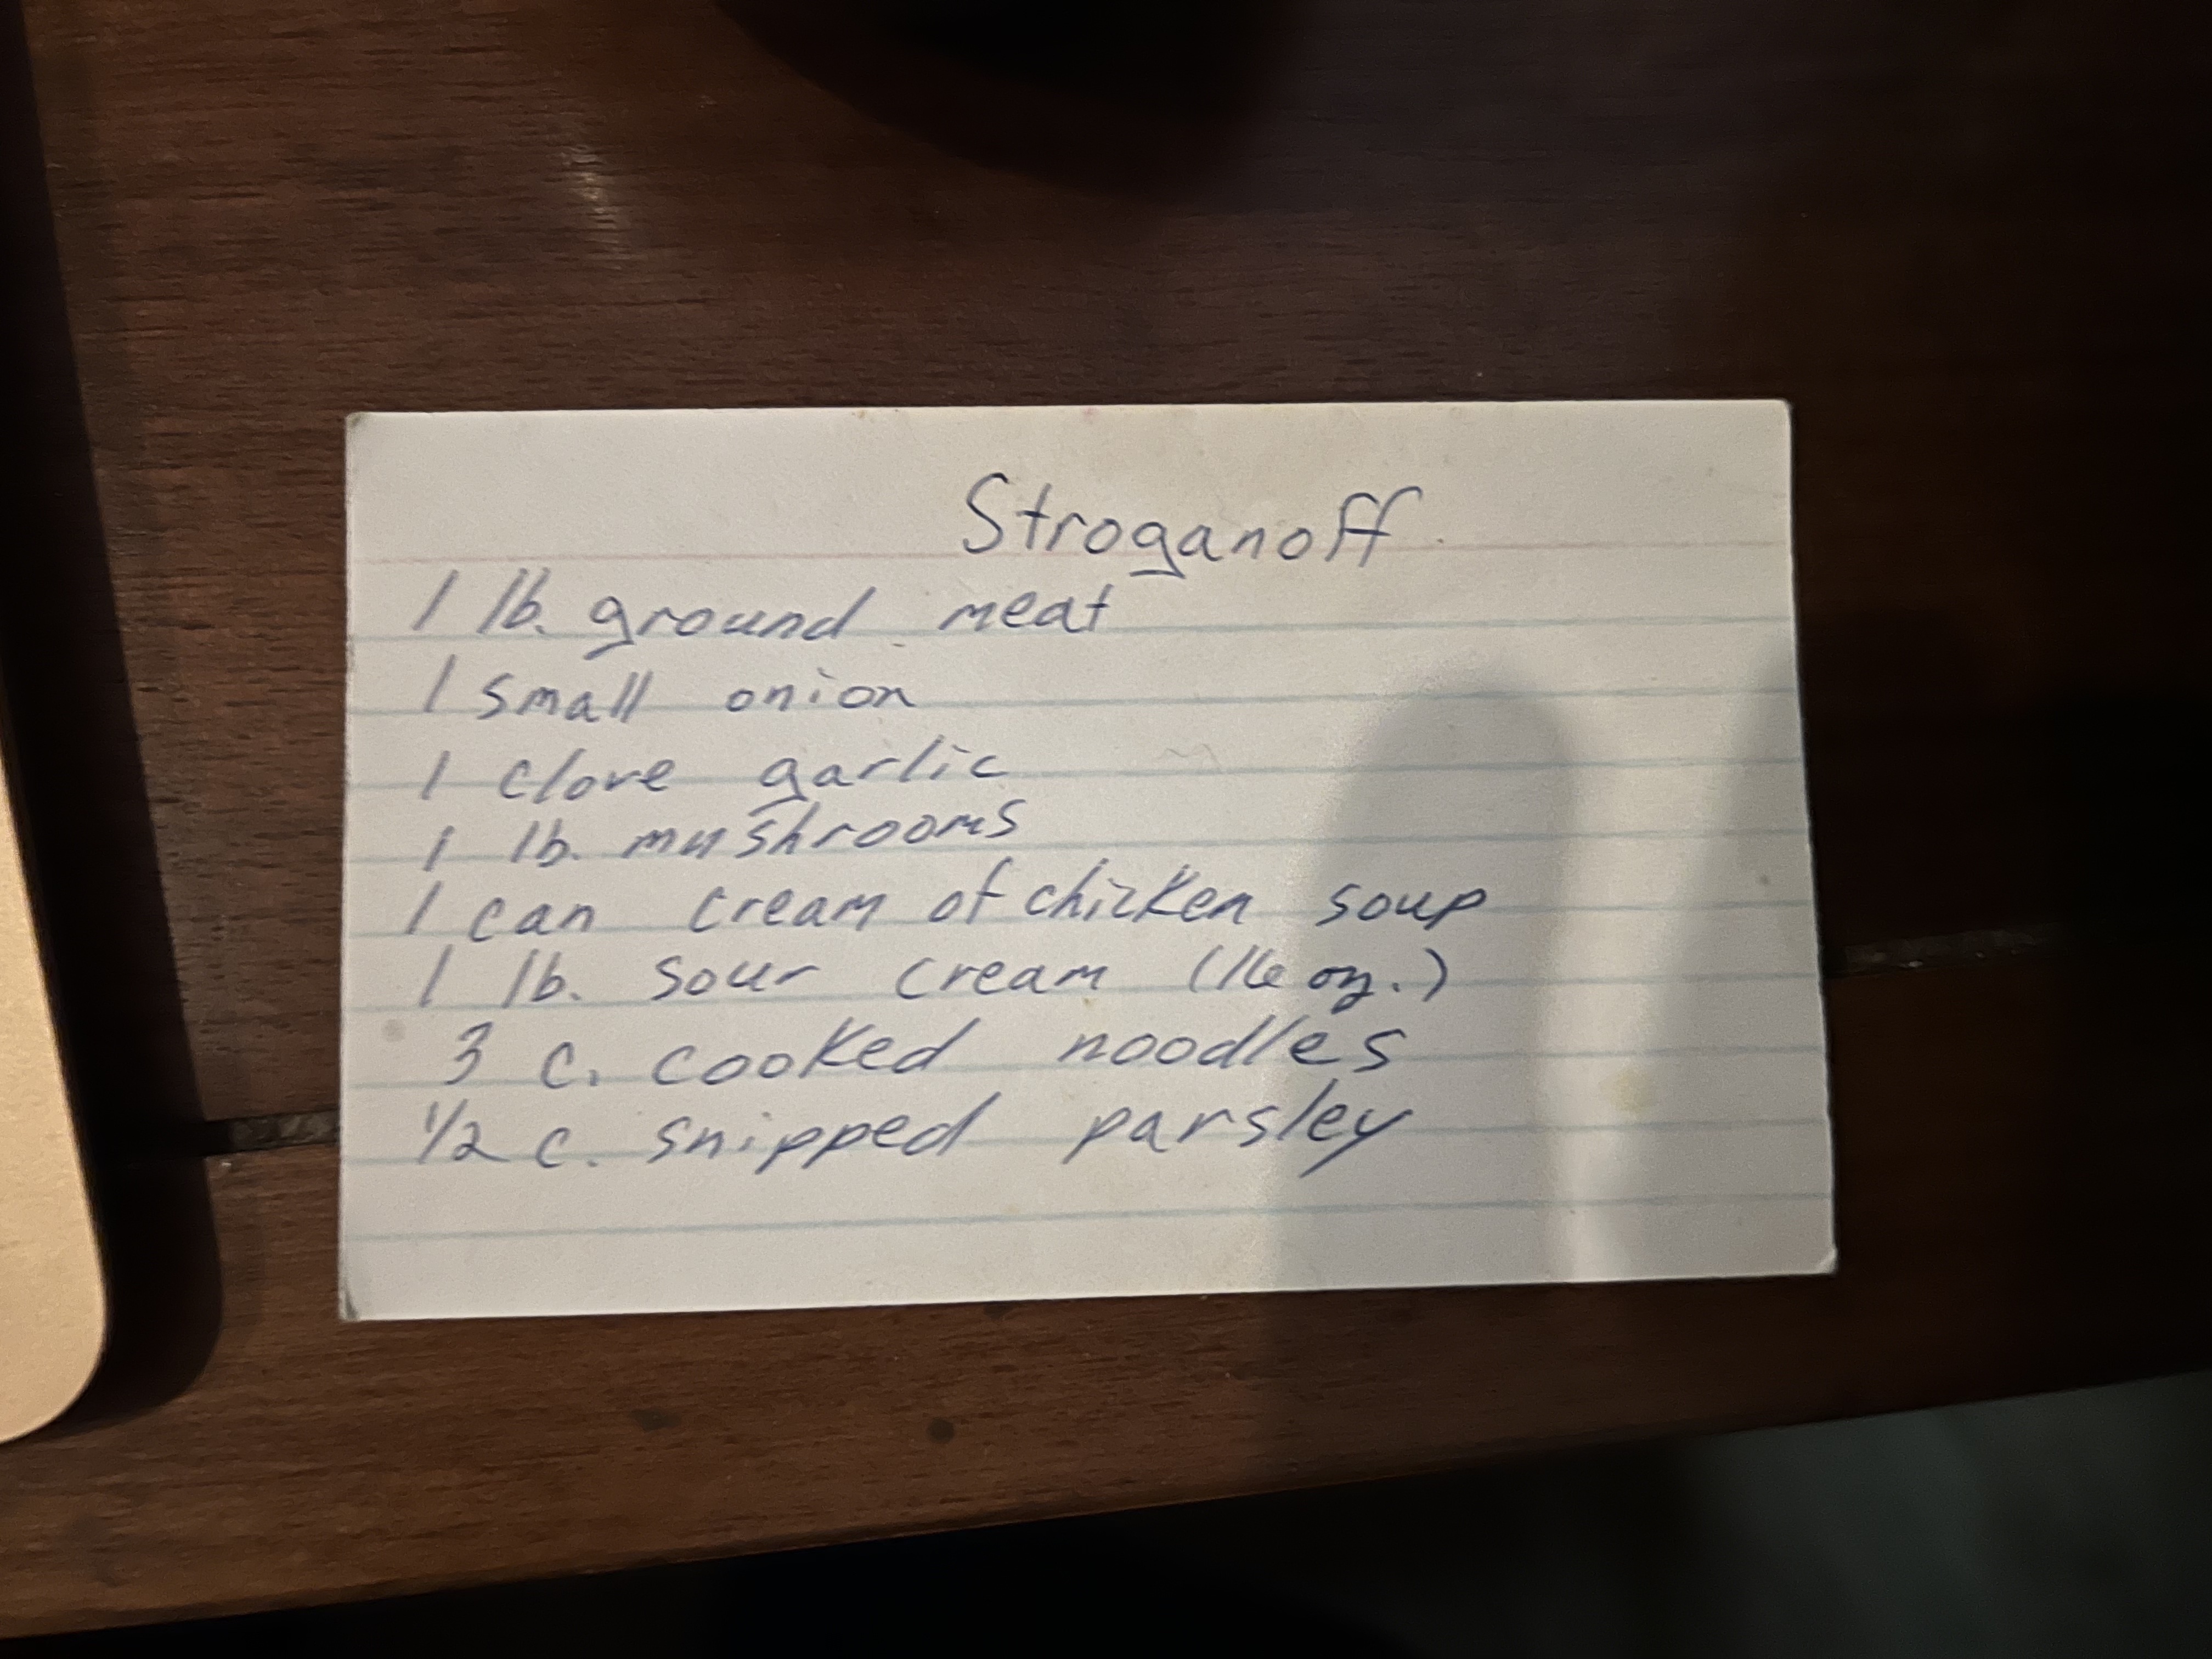 Stroganoff
1 lb. ground meat
1 small onion
1 clove garlic
1 lb. mushrooms
1 can cream of chicken soup
1 lb. sour cream (16 oz.)
3 c. cooked noodles
1/2 c. snipped parsley